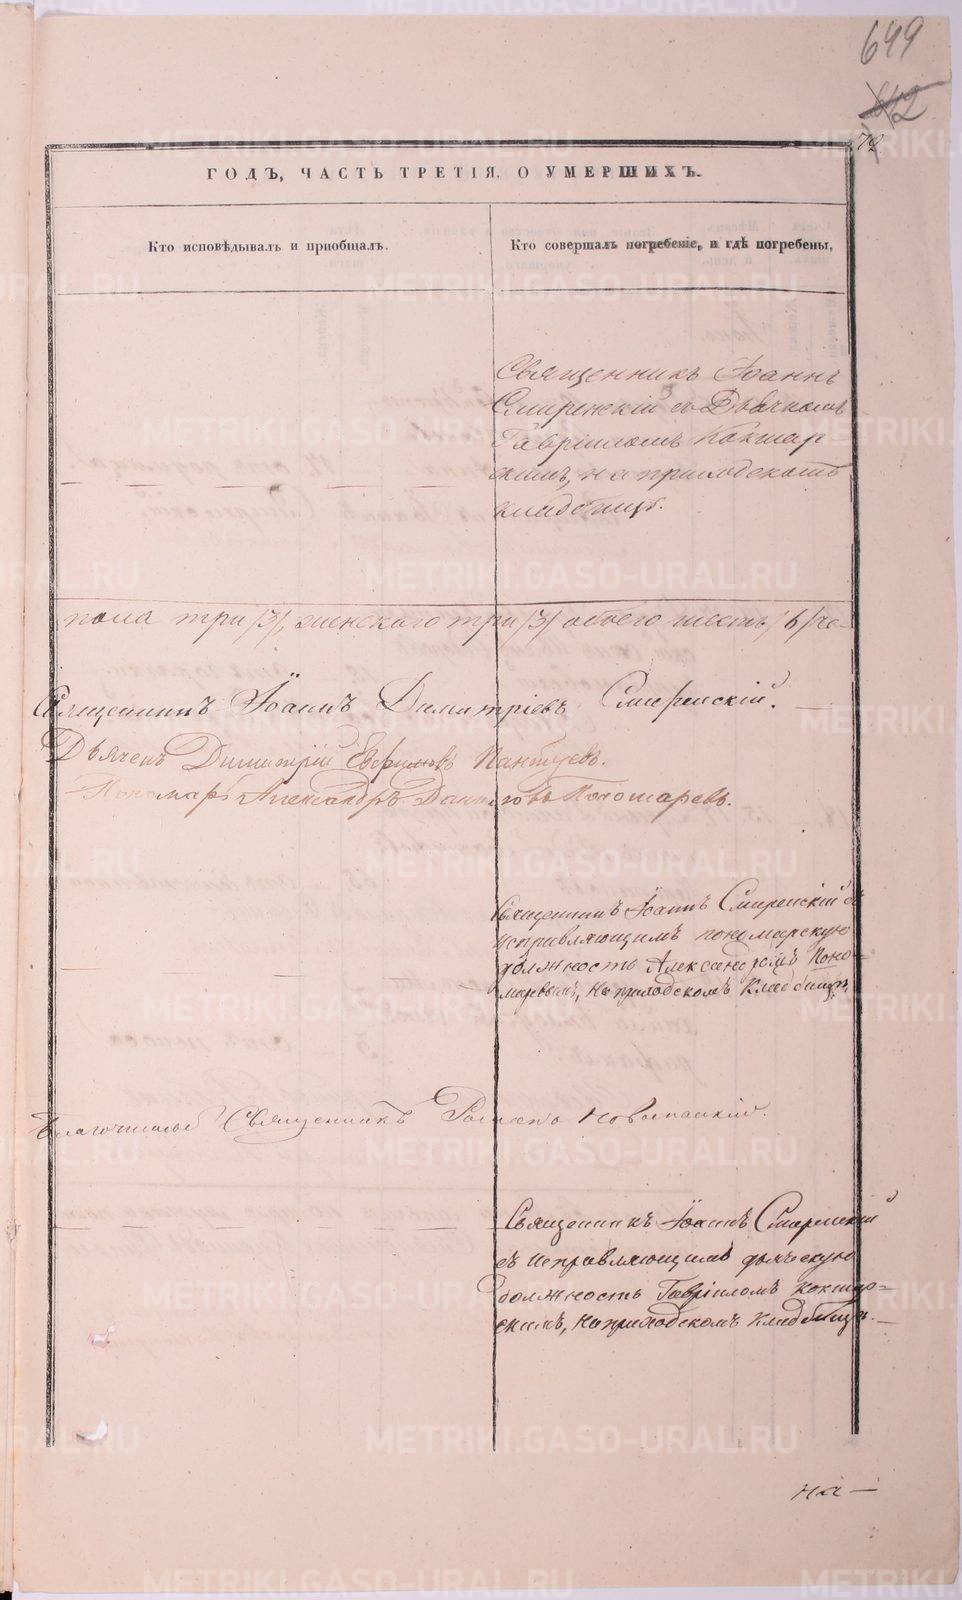 649
642
72
ГОДЪ, ЧАСТЬ ТРЕТІЯ, О УМЕРШИХЪ.
Кто исповѣдывалъ и пріобщалъ.
Кто совершалъ погребеніе, и гдѣ погребены,
Священникъ Іоаннъ
Смиренскій съ Дьячкомъ
Гавріиломъ Кокшар
скимъ, на приходскомъ
кладбищѣ.
пола три /3/, женскаго три /3/ обоего шесть /6/ че-
Священникъ Іоаннъ Димитріевъ Смиренскій.
Дьячекъ Димитрій Евфимовъ Пантуевъ.
Пономарь Александръ Даниловъ Пономаревъ.
Священникъ Іоаннъ Смиренскій съ
исправляющимъ пономарскую
должность Александромъ Поно-
маревымъ, на приходскомъ кладбищѣ.
Благочинный Священникъ Романъ
Священникъ Іоаннъ Смиренскій
съ исправляющимъ дьяческую
должность Гавріиломъ Кокшар-
скимъ, на приходскомъ кладбищѣ.
на
METRIKI.GASO-URAL.RU